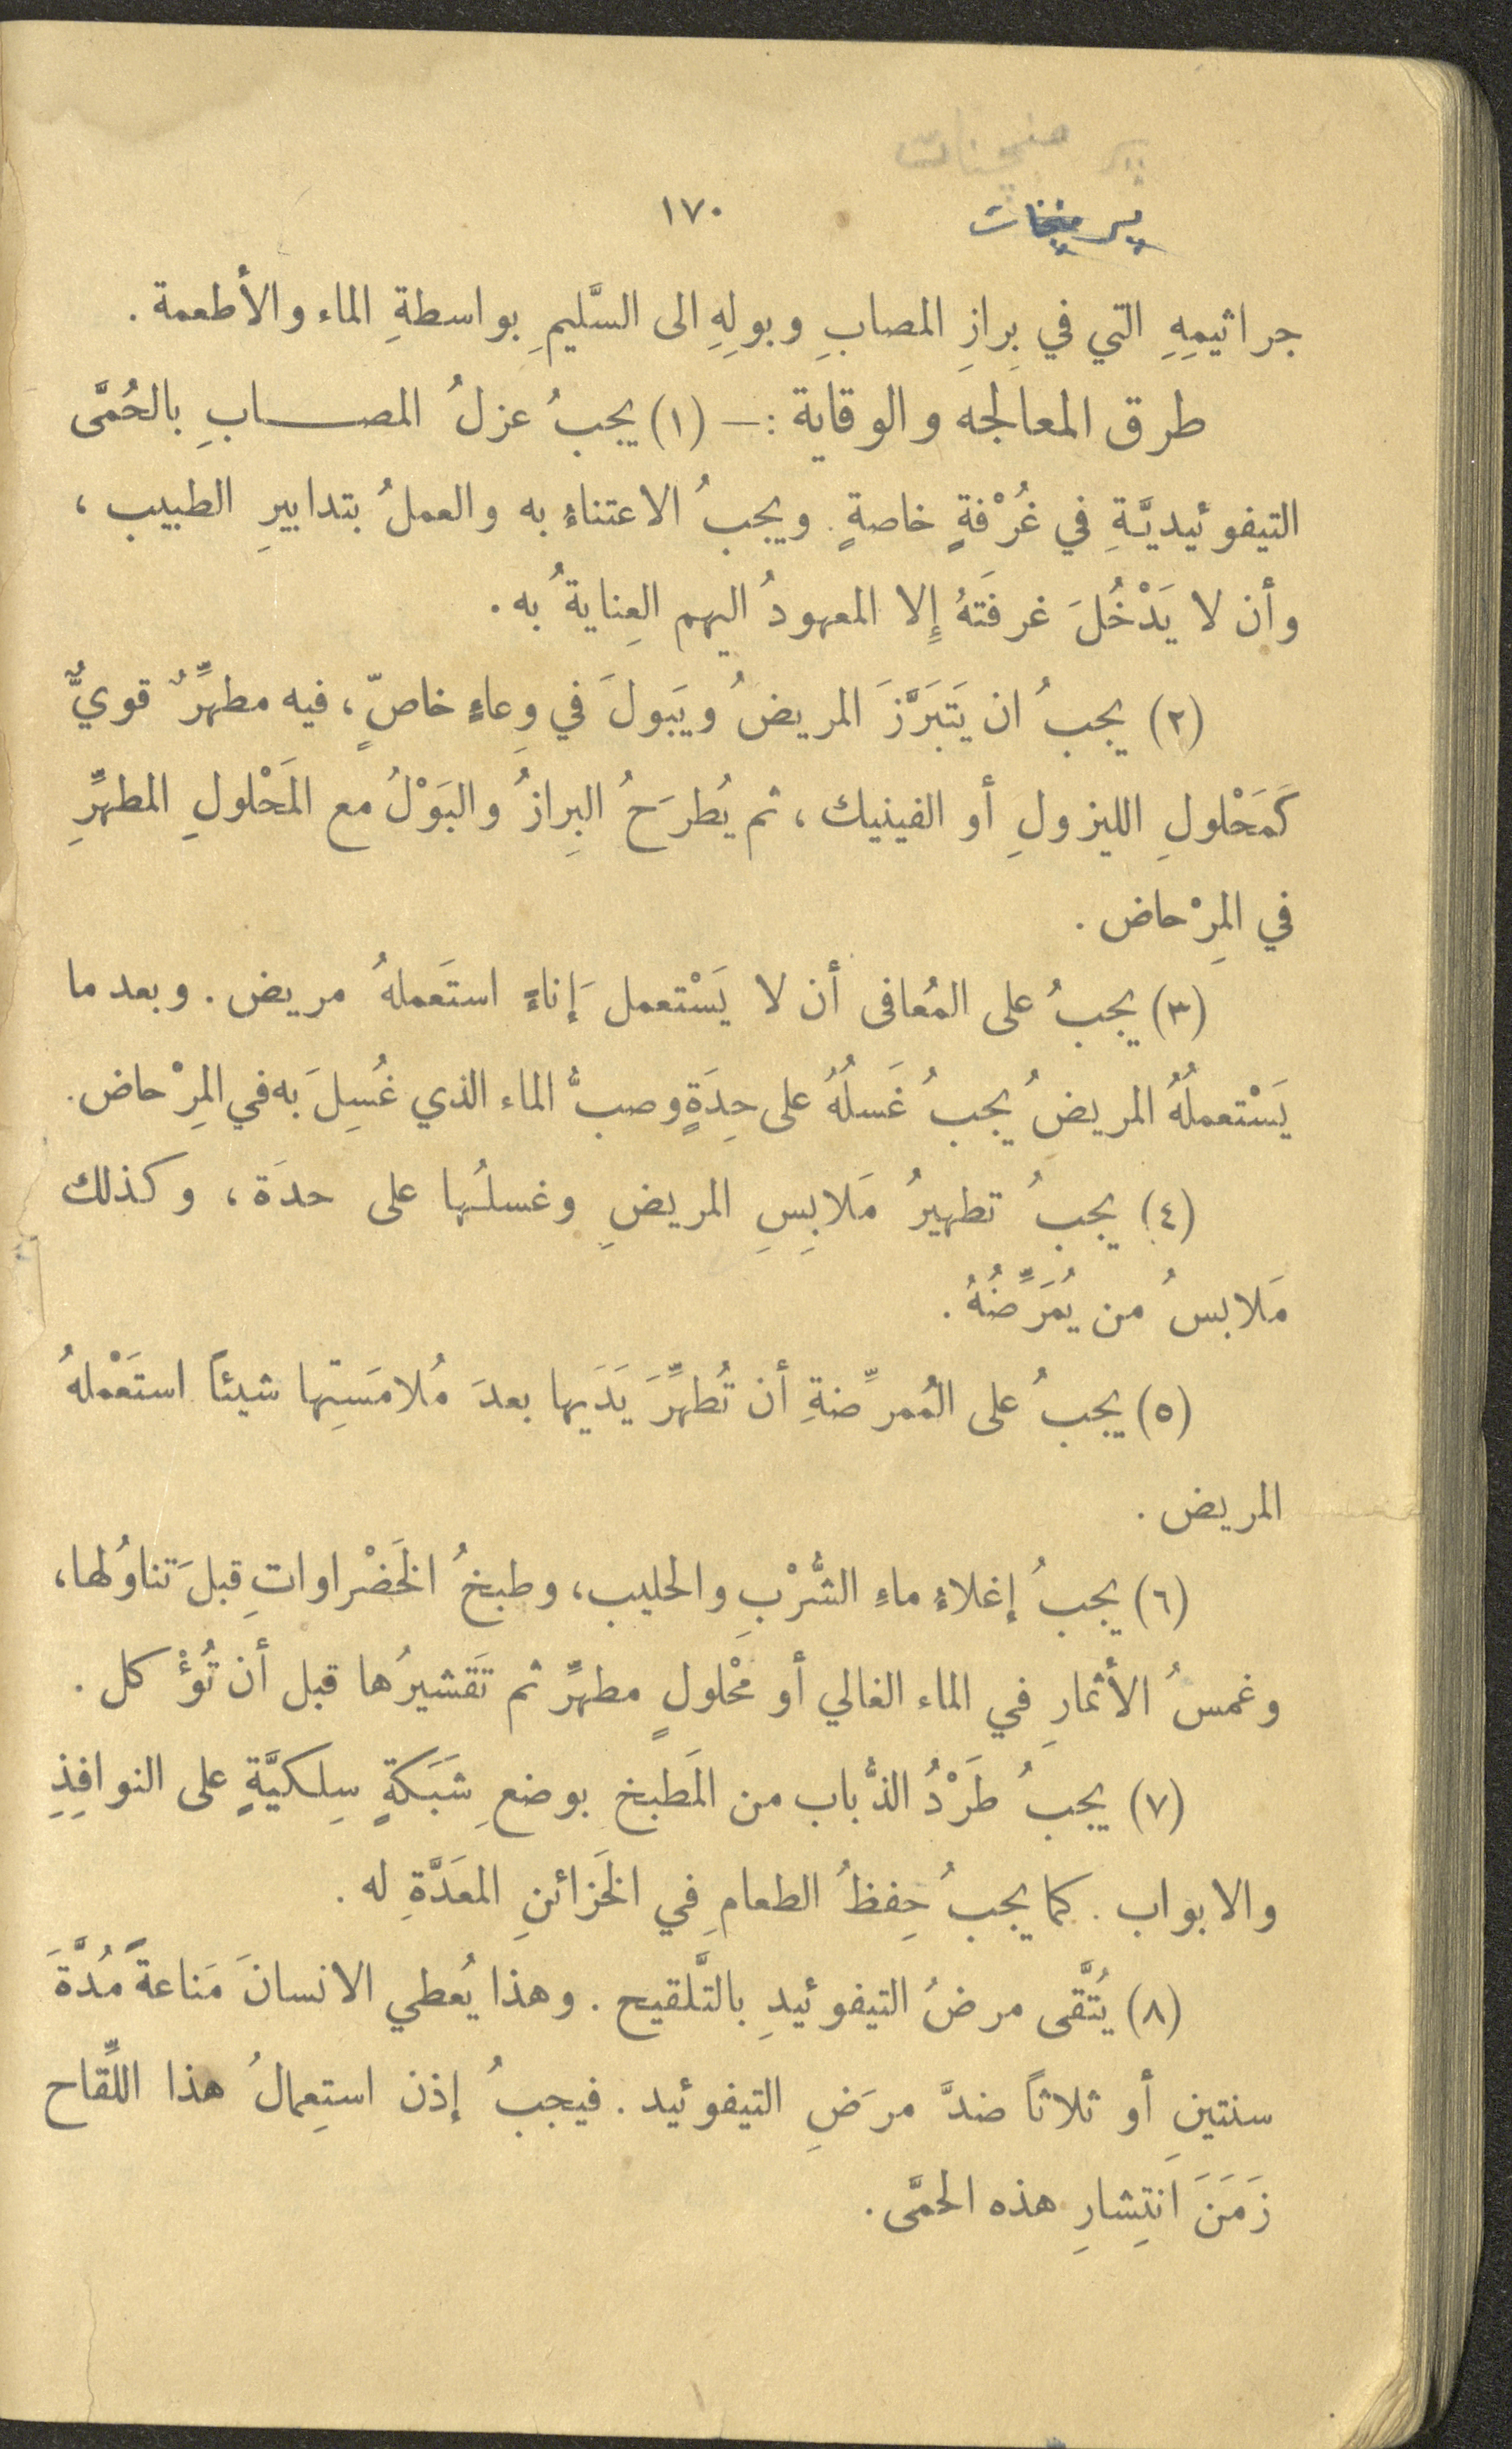 ١٧٠
جراثيمِهِ التي في بِرازِ المصابِ وبولِهِ الى السَّليمِ بواسطةِ الماء والأطعمة .
طرق المعالجه والوقاية :— (١) يجبُ عزلُ المصـــابِ بالحُمَّى
التيفوئيديَّةِ في غُرْفةٍ خاصةٍ . ويجبُ الاعتناءُ به والعملُ بتدابيرِ الطبيب ،
وأن لا يَدْخُلَ غرفَتَهُ إِلا المعهودُ اليهم العِنايةُ به .
(٢) يجبُ ان يَتَبَرَّزَ المريضُ ويَبولَ في وِعاءٍ خاصٍّ ، فيه مطهِّرٌ قويٌّ
كَمَحْلولِ الليزولِ أو الفينيك ، ثم يُطرَحُ البِرازُ والبَوْلُ مع المَحْلولِ المطهِّرِ
في المِرْحاض .
(٣) يجبُ على المُعافى أن لا يَسْتعملَ إناءً استَعملهُ مريض . وبعد ما
يَسْتعملُهُ المريضُ يجبُ غَسلُهُ على حِدَةٍ وصبُّ الماء الذي غُسِلَ به في المِرْحاض .
(٤) يجبُ تطهيرُ مَلابِسِ المريضِ وغسلُها على حدَة ، وكذلك
مَلابسُ من يُمَرِّضُهُ .
(٥) يجبُ على المُمرِّضةِ أن تُطهِّرَ يَدَيها بعدَ مُلامَسِتِها شيئاً استَعْملهُ
المريض .
(٦) يجبُ إغلاءُ ماءِ الشُّرْبِ والحليب ، وطبخُ الخَضْراواتِ قبلَ تناوُلها ،
وغمسُ الأثمارِ في الماء الغالي أو مَحْلولٍ مطهِّرٍ ثم تَقشيرُها قبل أن تُؤْكل .
(٧) يجبُ طَرْدُ الذُّباب من المَطبخ بوضعِ شَبَكةٍ سِلكيَّةٍ على النوافِذِ
والابواب . كما يجبُ حِفظُ الطعامِ في الخَزائنِ المعَدَّةِ له .
(٨) يُتَّقى مرضُ التيفوئيدِ بالتَّلقيح . وهذا يُعطي الانسانَ مَناعةً مُدَّةَ
سنتينِ أو ثلاثاً ضدَّ مرَضِ التيفوئيد . فيجبُ إذن استِعمالُ هذا اللِّقاح
زَمَنَ انتِشارِ هذه الحمَّى .